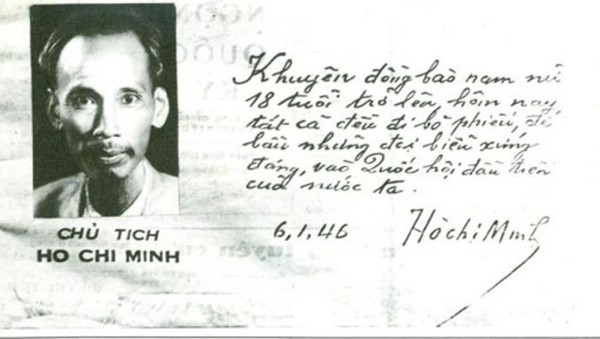 CHỦ TICH
HO CHI MINH
Khuyên đồng bào nam nữ
18 tuổi trở lên, hôm nay
tất cả đều đi bỏ phiếu, để
bầu những đại biểu xứng
đáng, vào Quốc hội đầu tiên
của nước ta.
6.1.46 Hồ chí Minh